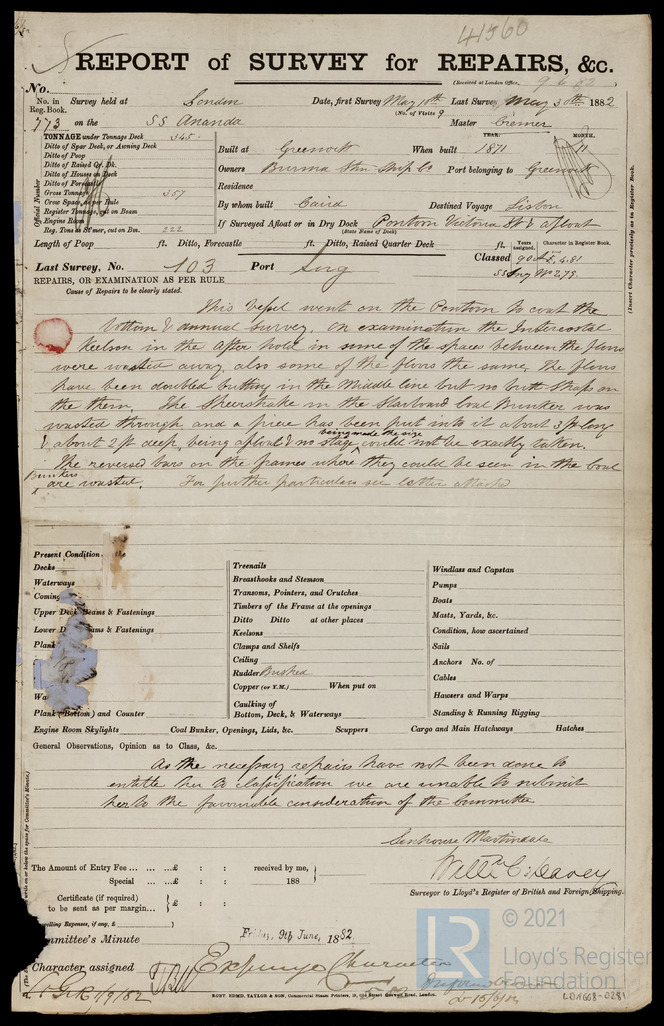 41560
REPORT of SURVEY for REPAIRS, &c.
(Received at London Office, 9.6.82)
No.
No. in Reg. Book. Survey held at London Date, first Survey May 10th Last Survey May 30th 1882
(No. of Visits 9)
773 on the SS Ananda Master Cremer
TONNAGE under Tonnage Deck 345
Ditto of Spar Deck, or Awning Deck
Ditto of Poop
Ditto of Raised Qr. Dk.
Ditto of Houses on Deck
Ditto of Forecastle
Gross Tonnage 357
Crew Space, as per Rule
Register Tonnage, cut on Beam
Engine Room
Reg. Tons as St'mer, cut on Bm. 222
Official Number
YEAR. MONTH.
Built at Greenock When built 1871 11
Owners Burma Stm. Ship Co Port belonging to Greenock
Residence
By whom built Caird Destined Voyage Lisbon
If Surveyed Afloat or in Dry Dock Pontoon Victoria & afloat
(State Name of Dock)
Length of Poop ft. Ditto, Forecastle ft. Ditto, Raised Quarter Deck ft.
Years assigned. Character in Register Book.
Last Survey, No. 103 Port Classed
(Insert Character precisely as in Register Book.)
REPAIRS, OR EXAMINATION AS PER RULE
Cause of Repairs to be clearly stated.
This Vessel went on the Pontoon to coat the
bottom & annual Survey. On examination the Intercostal
Keelson in the after hold in some of the spaces between the floors
were wasted away also some of the floors the same. The floors
have been doubled butting in the Middle line but no butt straps on
the them. The Sheerstrake in the Starboard coal Bunker was
wasted through and a piece has been put into it about 3 ft long
& about 2 ft deep, being afloat & no stage being made the size could not be exactly taken.
The reversed bars on the frames where they could be seen in the coal
Bunkers are wasted. For further particulars see letter attached
Present Condition of the
Decks
Waterways
Coming
Upper Deck Beams & Fastenings
Lower Beams & Fastenings
Plank
Wa
Plank (Bottom) and Counter
Treenails
Breasthooks and Stemson
Transoms, Pointers, and Crutches
Timbers of the Frame at the openings
Ditto Ditto at other places
Keelsons
Clamps and Shelfs
Ceiling
Rudder Bushed
Copper (or Y.M.) When put on
Caulking of
Bottom, Deck, & Waterways
Windlass and Capstan
Pumps
Boats
Masts, Yards, &c.
Condition, how ascertained
Sails
Anchors No. of
Cables
Hawsers and Warps
Standing & Running Rigging
Engine Room Skylights Coal Bunker, Openings, Lids, &c. Scuppers Cargo and Main Hatchways Hatches
General Observations, Opinion as to Class, &c.
As the necessary repairs have not been done to
entitle her to classification we are unable to submit
her to the favourable consideration of the Committee
Senhouse Martindale
The Amount of Entry Fee £ : : received by me,
Special £ : : 188
Surveyor to Lloyd's Register of British and Foreign Shipping.
Certificate (if required)
to be sent as per margin £ : :
velling Expenses, if any, £
ommittee's Minute Friday, 9th June, 1882
Character assigned Expunge Character
RONY EDMD. TAYLOR & SON, Commercial Steam Printers, London.
LR © 2021
Lloyd's Register
Foundation
LON668-0281